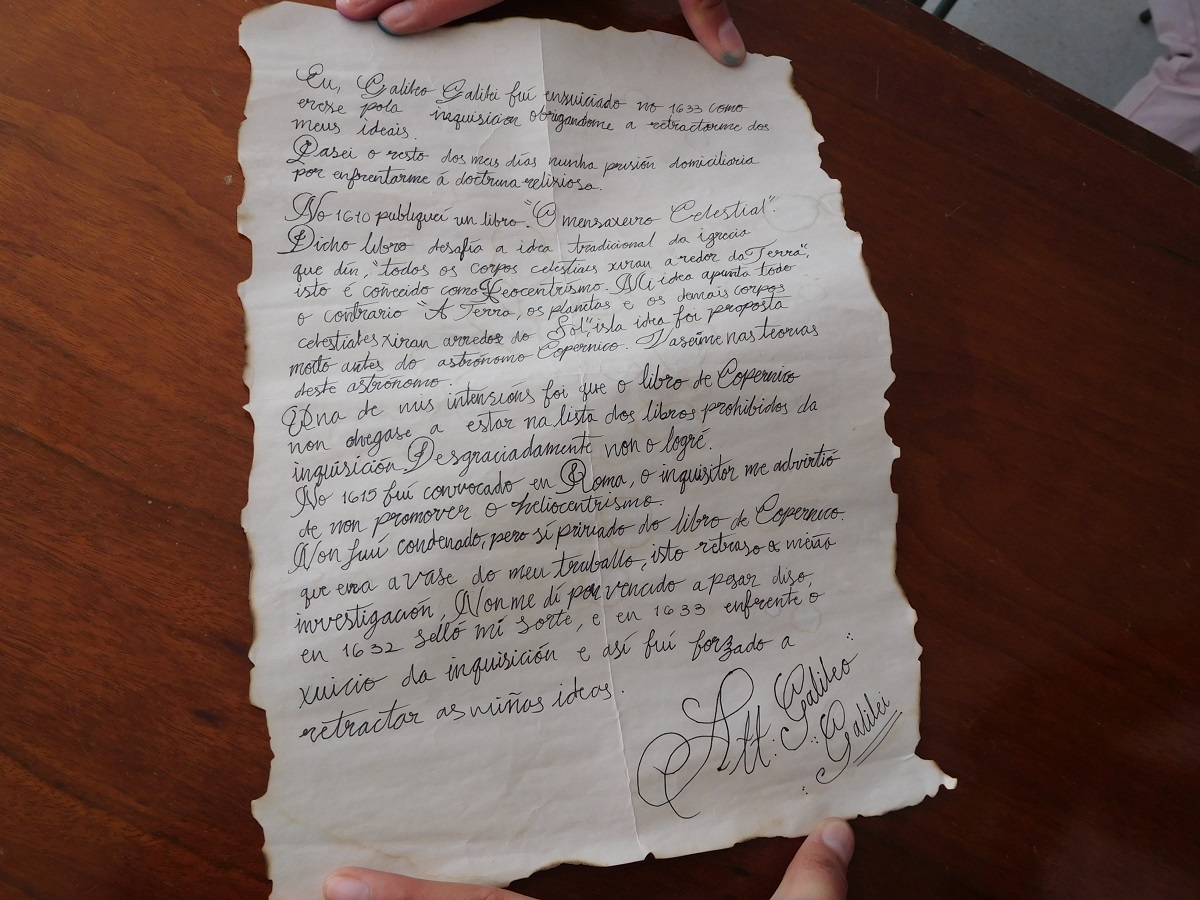 Eu, Galileo Galilei fuí enxuiciado no 1633 como
erexe pola inquisicion obrigandome a retractarme dos
meus ideais.
Pasei o resto dos meus días nunha prisión domiciliaria
por enfrentarme á doctrina relixiosa.
No 1610 publiquei un libro "O mensaxeiro Celestial".
Dicho libro desafía a idea tradicional da igrecia
que din, "todos os corpos celestiais xiran a redor da Terra",
isto é coñecido como Xeocentrismo. Mi idea apunta todo
o contrario "A Terra, os planetas e os demais corpos
celestiales xiran arredor do Sol", ista idea foi proposta
moito antes do astrónomo Copernico. Vaseime nas teorias
deste astrónomo.
Una de mis intensións foi que o libro de Copernico
non chegase a estar na lista dos libros prohibidos da
inquisición. Desgraciadamente non o logré.
No 1615 fuí convocado en Roma, o inquisitor me advirtió
de non promover o heliocentrismo.
Non fuí condenado, pero sí privado do libro de Copernico.
que era a vase do meu traballo, isto retraso a miña
investigación. Non me dí por vencido a pesar diso,
en 1632 selló mi sorte, e en 1633 enfrente o
xuicio da inquisición e así fuí forzado a
retractar as miñas ideas.
Att: Galileo
Galilei